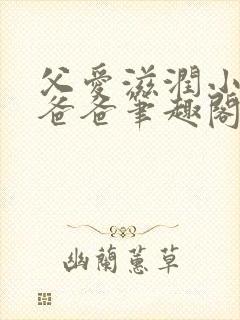 父愛滋潤小
爸爸筆趣閣
幽蘭蕙草